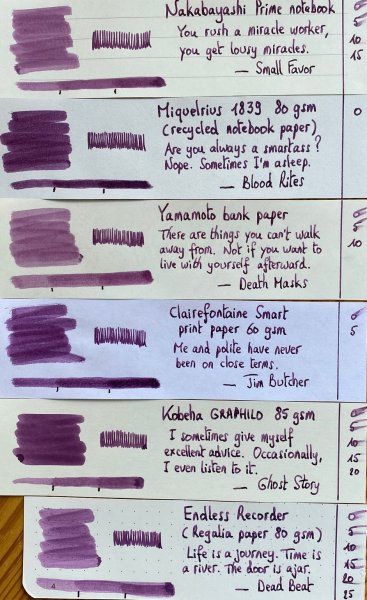 Nakabayashi Prime notebook
You rush a miracle worker,
you get lousy miracles.
— Small Favor
5
10
15
Miquelrius 1839 80 gsm
(recycled notebook paper)
Are you always a smartass?
Nope. Sometimes I'm asleep.
— Blood Rites
0
Yamamoto bank paper
There are things you can't walk
away from. Not if you want to
live with yourself afterward.
— Death Masks
0
5
10
Clairefontaine Smart
print paper 60 gsm
Me and polite have never
been on close terms.
— Jim Butcher
0
5
Kobeha GRAPHILO 85 gsm
I sometimes give myself
excellent advice. Occasionally,
I even listen to it.
— Ghost Story
0
5
10
15
20
Endless Recorder
(Regalia paper 80 gsm)
Life is a journey. Time is
a river. The door is ajar.
— Dead Beat
0
5
10
15
20
25